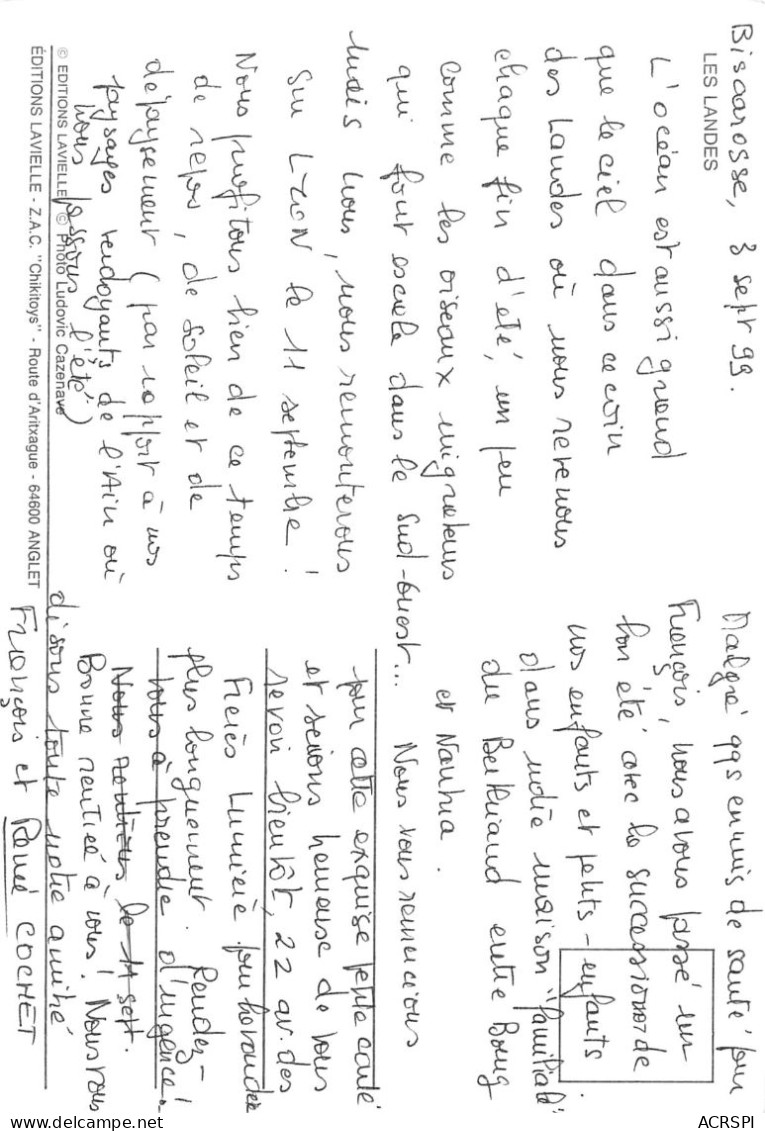 Biscarosse, 8 sept 99.
LES LANDES
L'océan est aussi grand
que le ciel dans ce coin
des Landes où nous revenons
chaque fin d'été, un peu
comme les oiseaux migrateurs
qui font escale dans le Sud-Ouest...
nous, nous remonterons
sur LYON le 11 septembre !
Nous profitons bien de ce temps
de repos, de soleil et de
dépaysement (par rapport à nos
paysages verdoyants de l'Ain où
nous passons l'été)
© EDITIONS LAVIELLE © Photo Ludovic Cazenave
ÉDITIONS LAVIELLE - Z.A.C. "Chikitoys" - Route d'Aritxague - 64600 ANGLET
Malgré qqs ennuis de santé pour
François, nous avons passé un
bon été avec la succession de
nos enfants et petits-enfants
dans notre maison "familiale"
du entre Bourg
et Nantua.
Nous vous remercions
pour cette exquise petite carte
et serions heureuse de vous
revoir bientôt, 22 av. des
Frères Lumière
plus longuement. Rendez-
vous à prendre d'urgence !
Nous rentrons le 11 sept.
Bonne rentrée à vous ! Nous vous
disons toute notre amitié
François et Renée COCHET
ACRSPI
delcampe.net